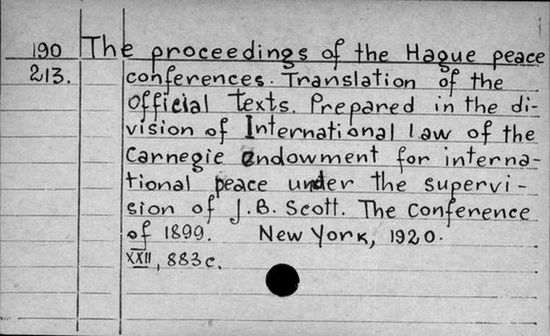 190 The proceedings of the Hague peace
213. conferences. Translation of the
official texts. Prepared in the di-
vision of International law of the
Carnegie endowment for interna-
tional peace under the supervi-
sion of J.B. Scott. The Conference
of 1899. New York, 1920.
XXII, 883 c.